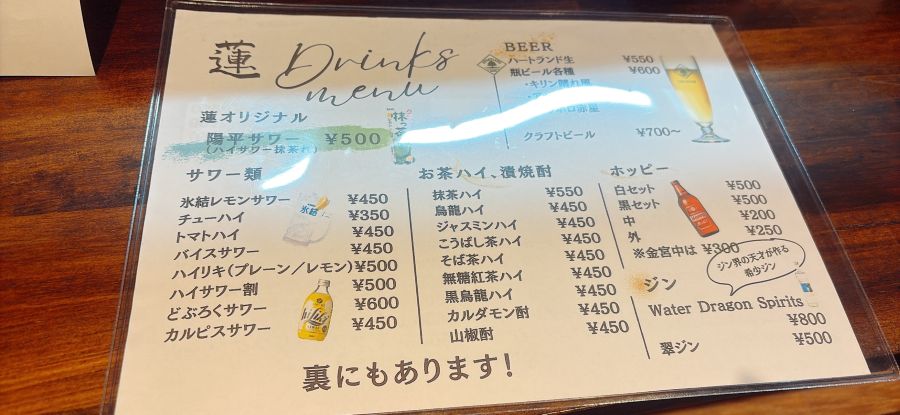 蓮 Drinks menu
蓮オリジナル
陽平サワー ¥500
(ハイサワー抹茶れ)
サワー類
氷結レモンサワー ¥450
チューハイ ¥350
トマトハイ ¥450
バイスサワー ¥450
ハイリキ(プレーン/レモン) ¥500
ハイサワー割 ¥500
どぶろくサワー ¥600
カルピスサワー ¥450
お茶ハイ、漬焼酎
抹茶ハイ ¥550
烏龍ハイ ¥450
ジャスミンハイ ¥450
こうばし茶ハイ ¥450
そば茶ハイ ¥450
無糖紅茶ハイ ¥450
黒烏龍ハイ ¥450
カルダモン酎 ¥450
山椒酎 ¥450
BEER
ハートランド生 ¥550
瓶ビール各種 ¥600
・キリン晴れ風
ポロ赤星
クラフトビール ¥700~
ホッピー
白セット ¥500
黒セット ¥500
中 ¥200
外 ¥250
※金宮中は ¥300
ジン界の天才が作る
希少ジン
ジン
Water Dragon Spirits
¥800
翠ジン ¥500
裏にもあります!